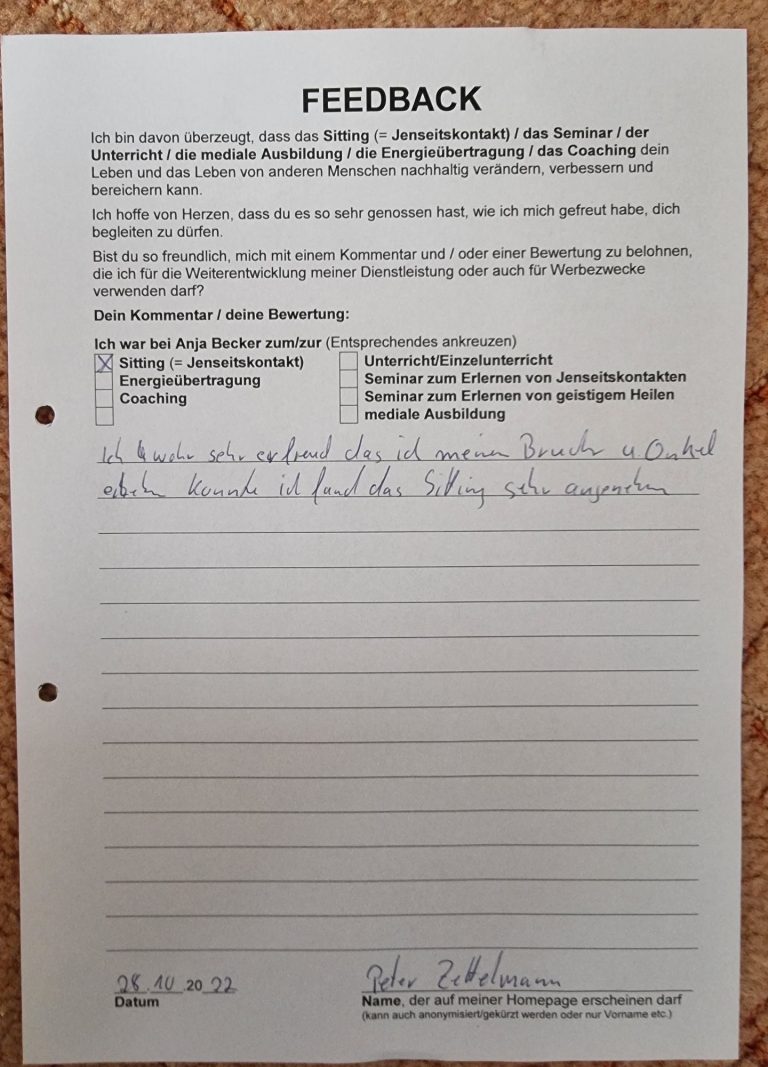 FEEDBACK
Ich bin davon überzeugt, dass das Sitting (= Jenseitskontakt) / das Seminar / der
Unterricht / die mediale Ausbildung / die Energieübertragung / das Coaching dein
Leben und das Leben von anderen Menschen nachhaltig verändern, verbessern und
bereichern kann.
Ich hoffe von Herzen, dass du es so sehr genossen hast, wie ich mich gefreut habe, dich
begleiten zu dürfen.
Bist du so freundlich, mich mit einem Kommentar und / oder einer Bewertung zu belohnen,
die ich für die Weiterentwicklung meiner Dienstleistung oder auch für Werbezwecke
verwenden darf?
Dein Kommentar / deine Bewertung:
Ich war bei Anja Becker zum/zur (Entsprechendes ankreuzen)
X Sitting (= Jenseitskontakt) Unterricht/Einzelunterricht
Energieübertragung Seminar zum Erlernen von Jenseitskontakten
Coaching Seminar zum Erlernen von geistigem Heilen
mediale Ausbildung
Ich wahr sehr erfreud das ich meinen u. Onkel
konnte ich fand das Sitting sehr angenehm
28.10.2022 Peter Zettelmann
Datum Name, der auf meiner Homepage erscheinen darf
(kann auch anonymisiert/gekürzt werden oder nur Vorname etc.)